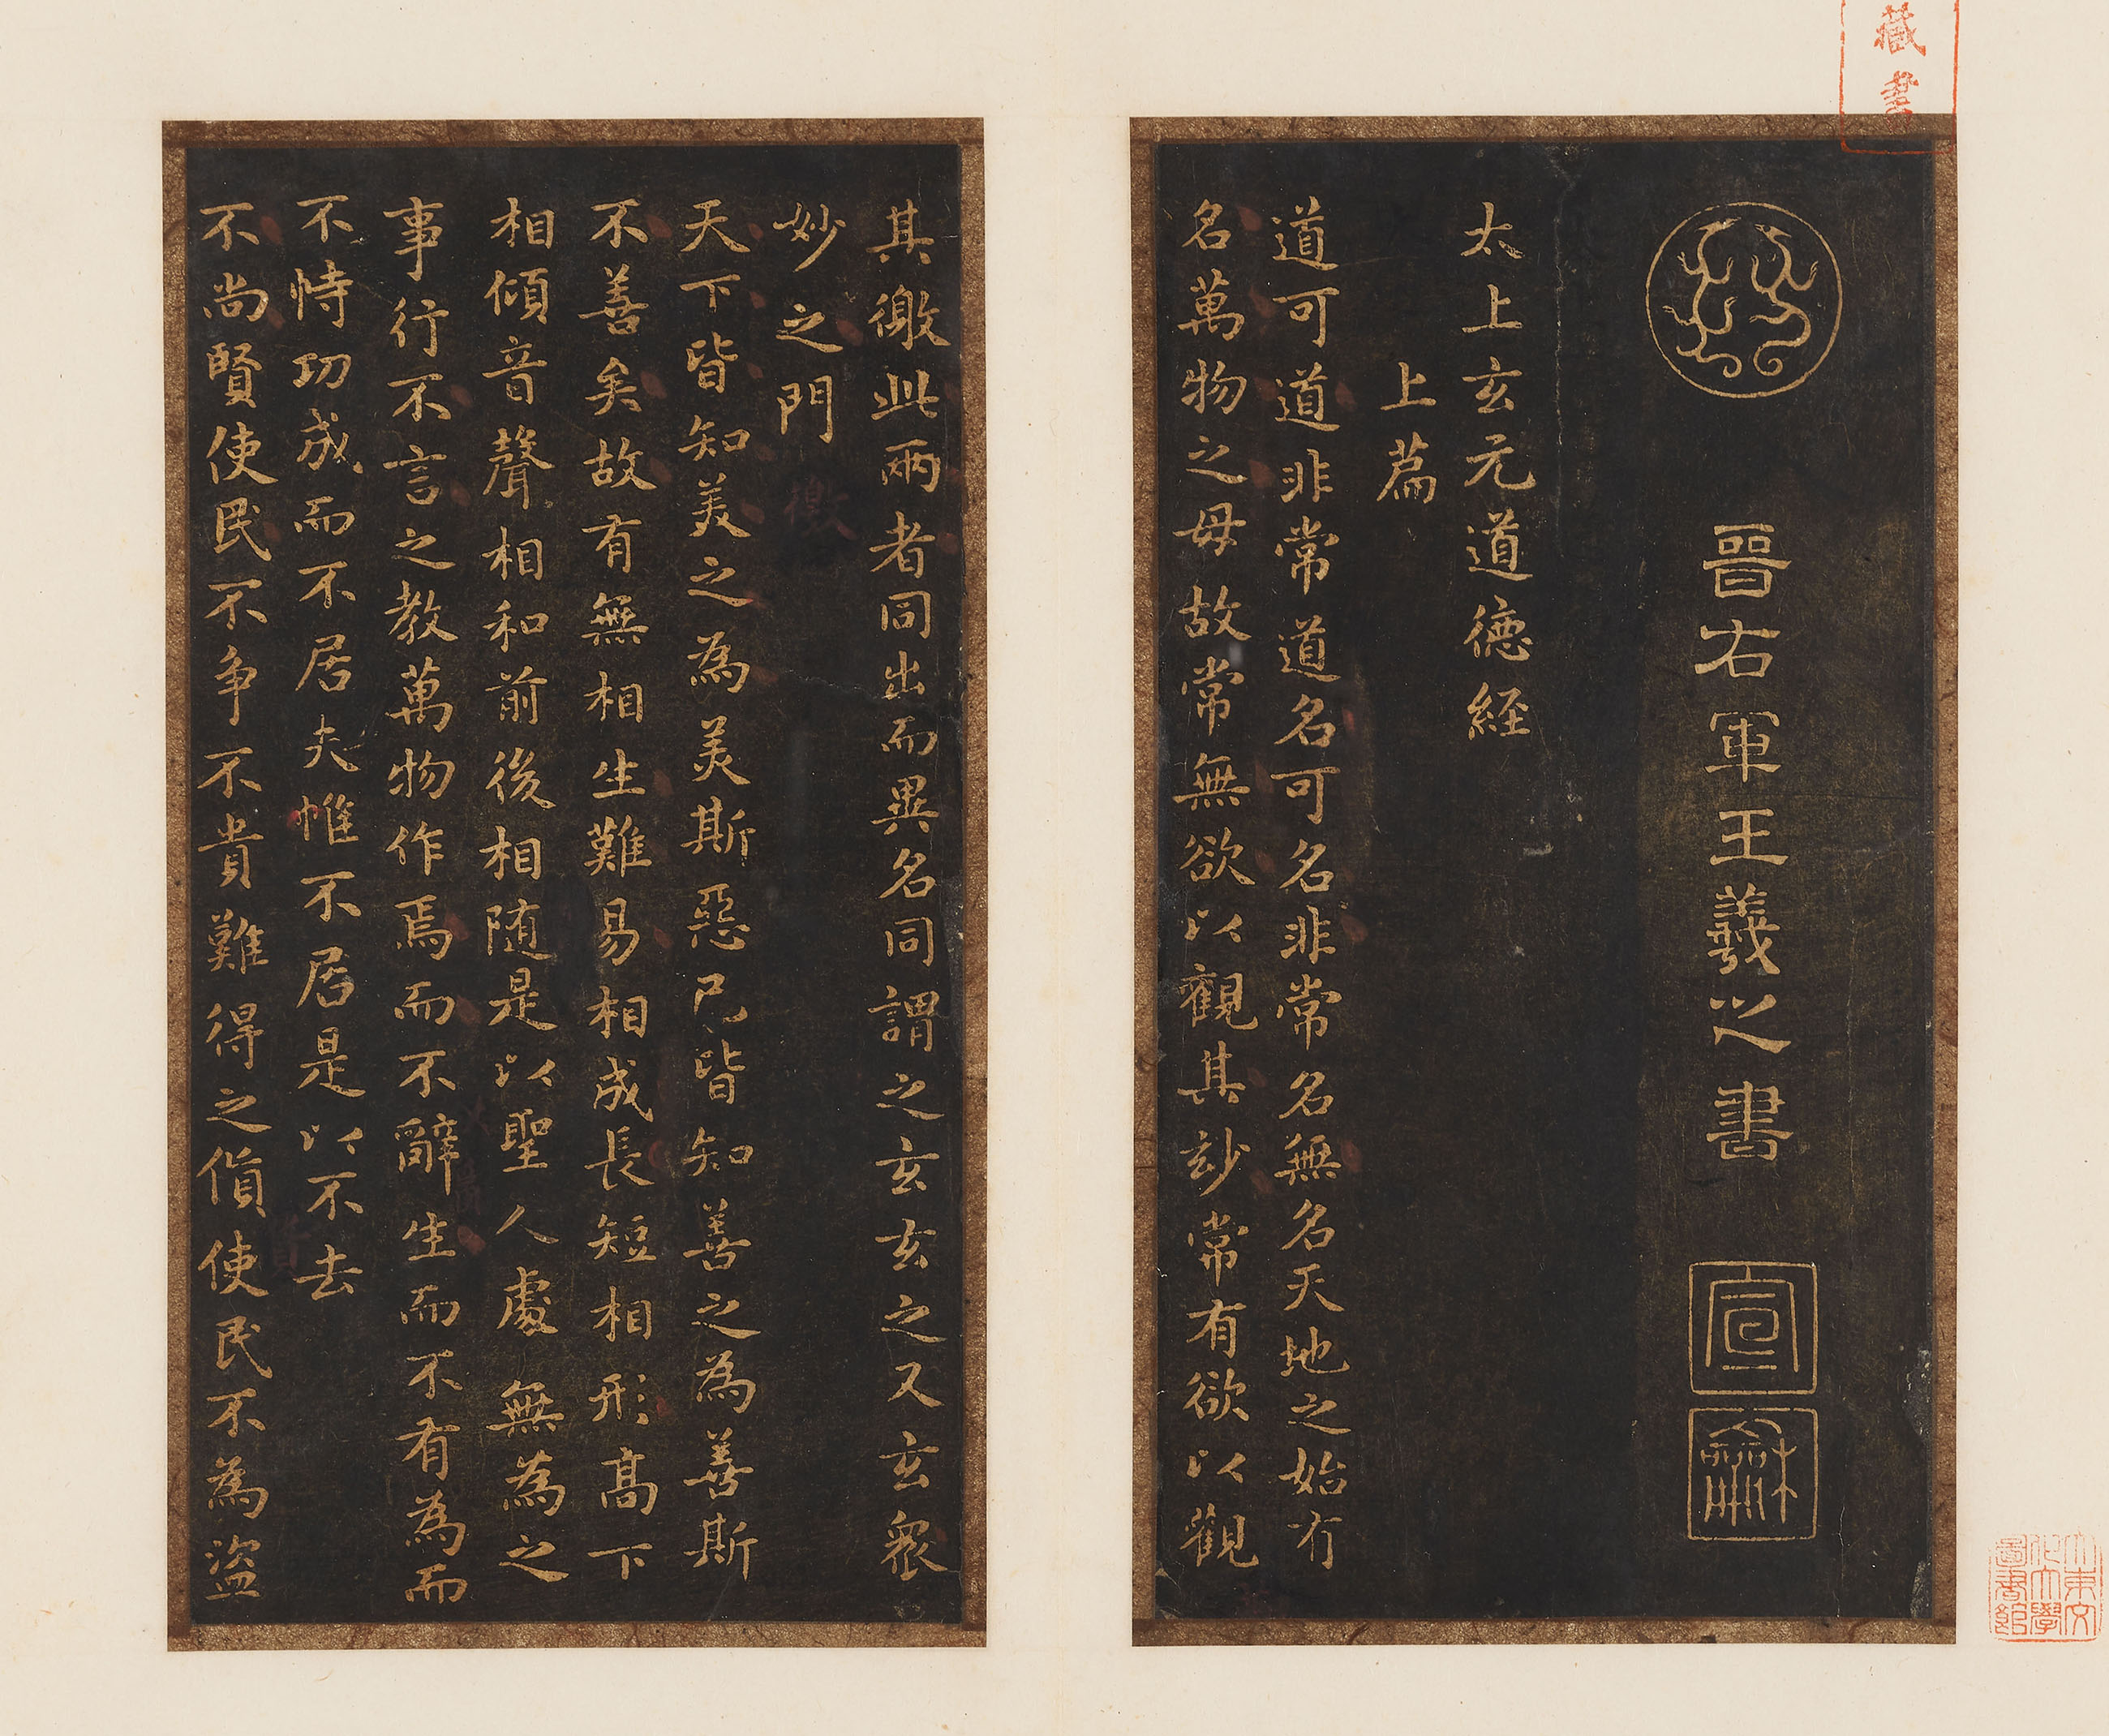 藏書
晉右軍王羲之書
宣
龢
太上玄元道德経
上篇
道可道非常道名可名非常名無名天地之始有
名萬物之母故常無欲以觀其玅常有欲以觀
其徼此兩者同出而異名同謂之玄玄之又玄衆
妙之門
天下皆知美之為美斯惡已皆知善之為善斯
不善矣故有無相生難易相成長短相形髙下
相傾音聲相和前後相随是以聖人處無為之
事行不言之教萬物作焉而不辭生而不有為而
不恃功成而不居夫惟不居是以不去
不尚賢使民不争不貴難得之貨使民不為盜
大東文
化大學
圖書館